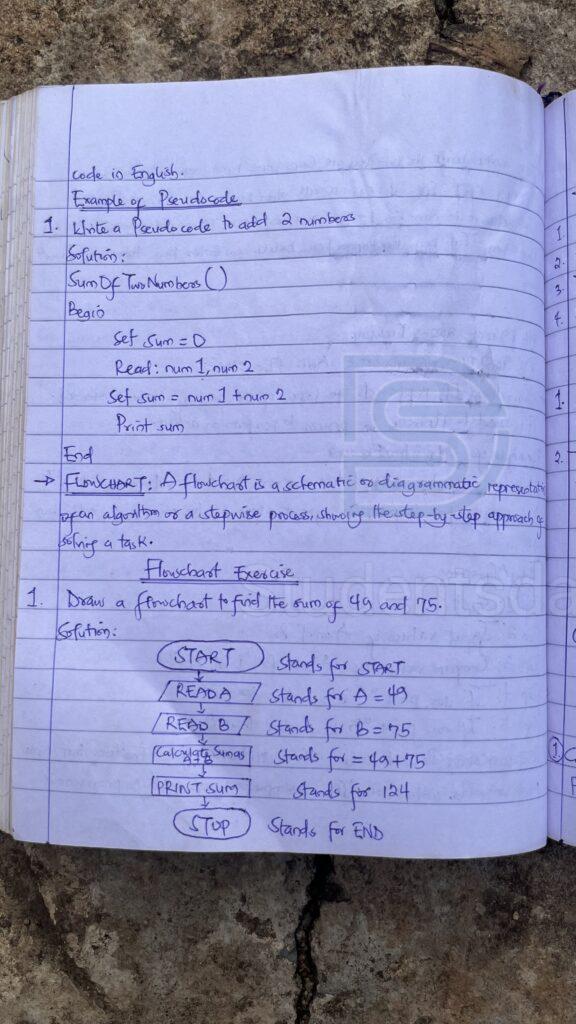 code in English.
Example of Pseudocode
1. Write a Pseudocode to add 2 numbers
Solution:
SumOfTwoNumbers()
Begin
Set sum = 0
Read: num 1, num 2
Set sum = num 1 + num 2
Print sum
End
→ FLOWCHART: A flowchart is a schematic or diagrammatic representati
of an algorithm or a stepwise process, showing the step-by-step approach of
solving a task.
Flowchart Exercise
1. Draw a flowchart to find the sum of 49 and 75.
Solution:
START Stands for START
READ A Stands for A = 49
READ B Stands for B = 75
Calculate Sum as A+B Stands for = 49+75
PRINT SUM Stands for 124
STOP Stands for END
1.
2.
3.
4.
1.
2.
1